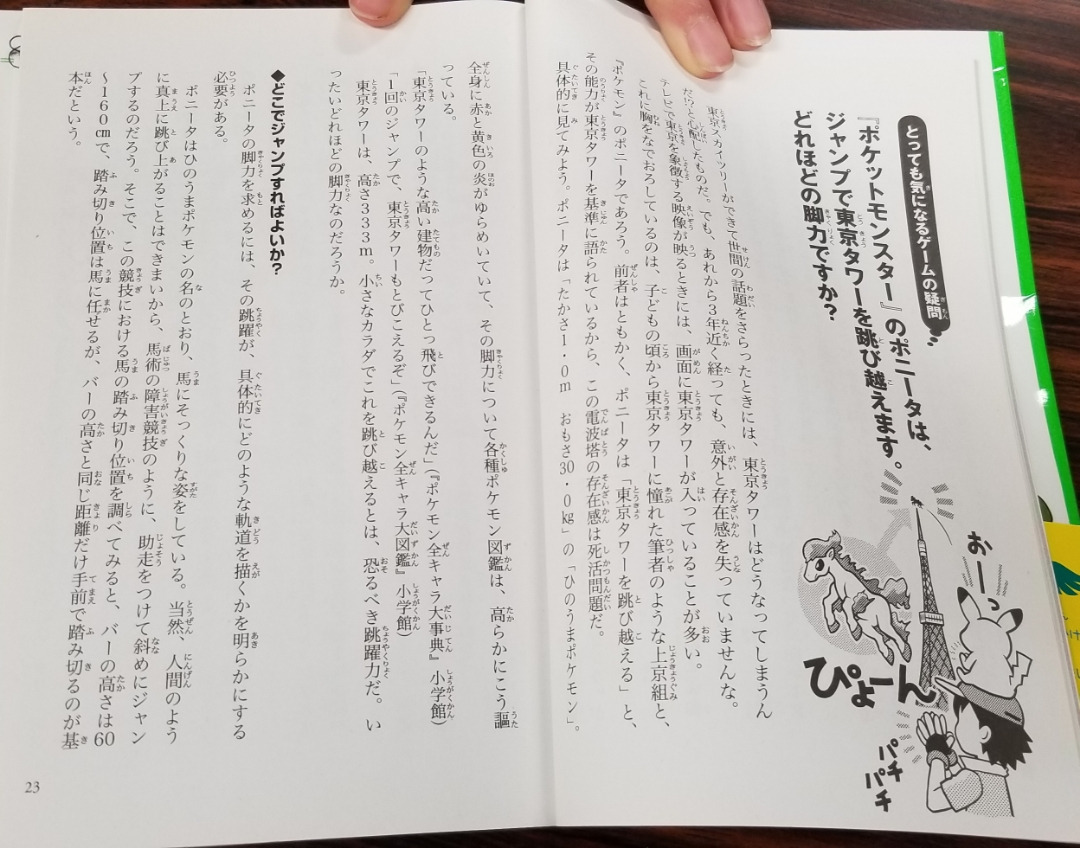 とっても気になるゲームの疑問
『ポケットモンスター』のポニータは、
ジャンプで東京タワーを跳び越えます。
どれほどの脚力ですか？
おーっ
ぴょーん
パチ
パチ
東京スカイツリーができて世間の話題をさらったときには、東京タワーはどうなってしまうん
だ!?と心配したものだ。でも、あれから3年近く経っても、意外と存在感を失っていませんな。
テレビで東京を象徴する映像が映るときには、画面に東京タワーが入っていることが多い。
これに胸をなでおろしているのは、子どもの頃から東京タワーに憧れた筆者のような上京組と、
『ポケモン』のポニータであろう。前者はともかく、ポニータは「東京タワーを跳び越える」と、
その能力が東京タワーを基準に語られているから、この電波塔の存在感は死活問題だ。
具体的に見てみよう。ポニータは「たかさ1・0m　おもさ30・0kg」の「ひのうまポケモン」。
全身に赤と黄色の炎がゆらめいていて、その脚力について各種ポケモン図鑑は、高らかにこう謳
っている。
「東京タワーのような高い建物だってひとっ飛びできるんだ」（『ポケモン全キャラ大事典』小学館）
「1回のジャンプで、東京タワーもとびこえるぞ」（『ポケモン全キャラ大図鑑』小学館）
東京タワーは、高さ333m。小さなカラダでこれを跳び越えるとは、恐るべき跳躍力だ。い
ったいどれほどの脚力なのだろうか。
◆どこでジャンプすればよいか？
ポニータの脚力を求めるには、その跳躍が、具体的にどのような軌道を描くかを明らかにする
必要がある。
ポニータはひのうまポケモンの名のとおり、馬にそっくりな姿をしている。当然、人間のよう
に真上に跳び上がることはできまいから、馬術の障害競技のように、助走をつけて斜めにジャン
プするのだろう。そこで、この競技における馬の踏み切り位置を調べてみると、バーの高さは60
～160cmで、踏み切り位置は馬に任せるが、バーの高さと同じ距離だけ手前で踏み切るのが基
本だという。
23